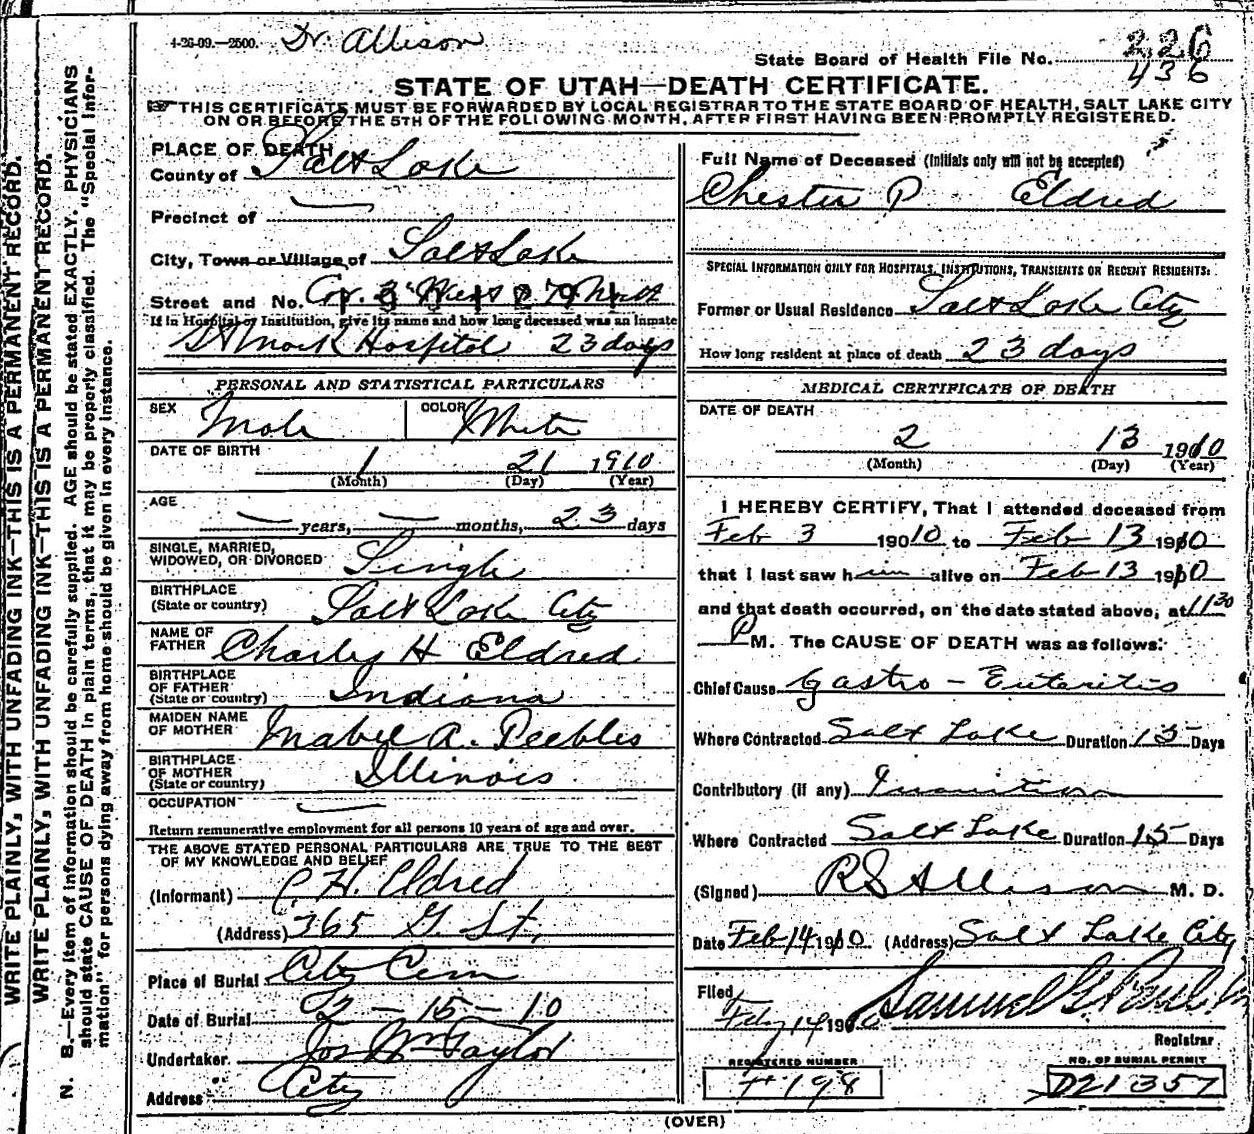 4-26-09.—2500. Dr. Allison
State Board of Health File No. 226
436
STATE OF UTAH—DEATH CERTIFICATE.
THIS CERTIFICATE MUST BE FORWARDED BY LOCAL REGISTRAR TO THE STATE BOARD OF HEALTH, SALT LAKE CITY
ON OR BEFORE THE 5TH OF THE FOLLOWING MONTH, AFTER FIRST HAVING BEEN PROMPTLY REGISTERED.
WRITE PLAINLY, WITH UNFADING INK—THIS IS A PERMANENT RECORD.
WRITE PLAINLY, WITH UNFADING INK—THIS IS A PERMANENT RECORD.
N. B.—Every item of information should be carefully supplied. AGE should be stated EXACTLY. PHYSICIANS
should state CAUSE OF DEATH in plain terms, that it may be properly classified. The "Special Infor-
mation" for persons dying away from home should be given in every instance.
PLACE OF DEATH
County of Salt Lake
Precinct of —
City, Town or Village of Salt Lake
Street and No. Cor. 3" West
If in Hospital or Institution, give its name and how long deceased was an inmate
St Mark Hospital 23 days
PERSONAL AND STATISTICAL PARTICULARS
SEX Male COLOR White
DATE OF BIRTH
1 21 1910
(Month) (Day) (Year)
AGE
— years, — months, 23 days
SINGLE, MARRIED,
WIDOWED, OR DIVORCED Single
BIRTHPLACE
(State or country) Salt Lake City
NAME OF
FATHER Charles H Eldred
BIRTHPLACE
OF FATHER
(State or country) Indiana
MAIDEN NAME
OF MOTHER Mabel A. Peebles
BIRTHPLACE
OF MOTHER
(State or country) Illinois
OCCUPATION —
Return remunerative employment for all persons 10 years of age and over.
THE ABOVE STATED PERSONAL PARTICULARS ARE TRUE TO THE BEST
OF MY KNOWLEDGE AND BELIEF
(Informant) C. H. Eldred
(Address) 365 G. St,
Place of Burial City Cem
Date of Burial 2 — 15 — 10
Undertaker. Jos Wm Taylor
Address City
Full Name of Deceased (Initials only will not be accepted)
Chester P Eldred
SPECIAL INFORMATION ONLY FOR HOSPITALS, INSTITUTIONS, TRANSIENTS OR RECENT RESIDENTS:
Former or Usual Residence Salt Lake City
How long resident at place of death 23 days
MEDICAL CERTIFICATE OF DEATH
DATE OF DEATH
2 13 1910
(Month) (Day) (Year)
I HEREBY CERTIFY, That I attended deceased from
Feb 3 19010 to Feb 13 1910
that I last saw him alive on Feb 13 1910
and that death occurred, on the date stated above, at 11 30
P M. The CAUSE OF DEATH was as follows:
Chief Cause Gastro - Enteritis
Where Contracted Salt Lake Duration 15 Days
Contributory (if any) Inanition
Where Contracted Salt Lake Duration 15 Days
(Signed) RS Allison M. D.
Date Feb 14 1910. (Address) Salt Lake City
Filed
Feby 14 1910 Samuel G. Paul
Registrar
REGISTERED NUMBER NO. OF BURIAL PERMIT
198 D21357
(OVER)